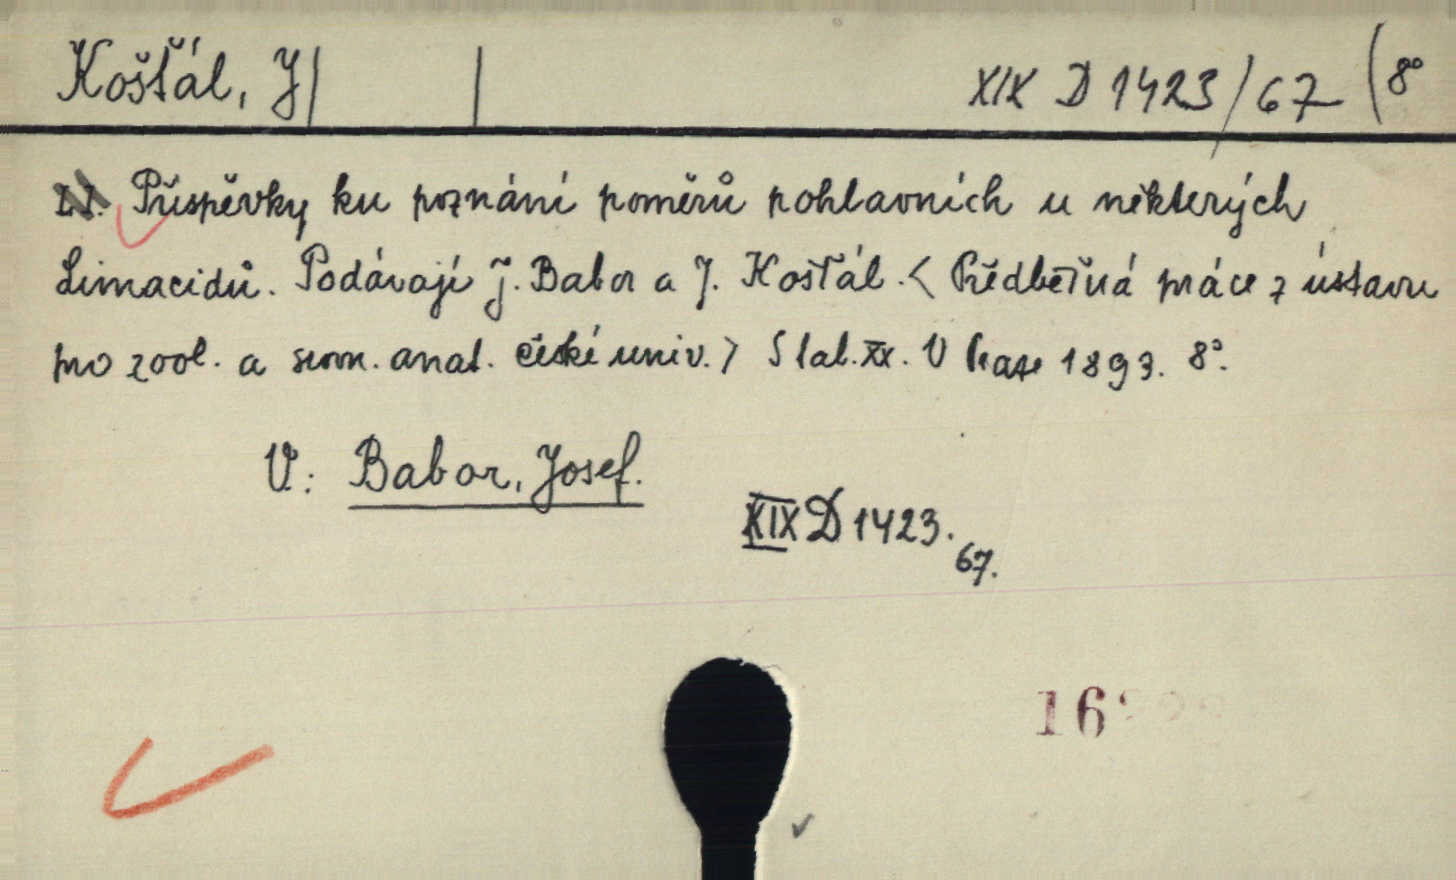 Košťál, J | | XIX D 1423/67 (8°
Příspěvky ku poznání poměrů pohlavních u některých
Limacidů. Podávají J. Babor a J. Košťál. < Předběžná práce z ústavu
pro zool. a srovn. anat. české univ. > S tab. XX. V Praze 1893. 8°.
V: Babor, Josef.
XIX D 1423.
67.
16